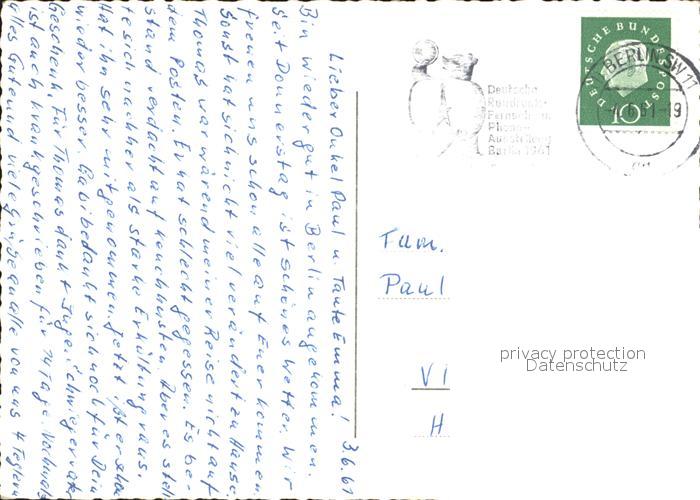 Lieber Onkel Paul u. Tante Emma! 3.6.61
Bin wieder gut in Berlin angekommen.
Seit Donnerstag ist schönes Wetter. Wir
freuen uns schon alle auf Euer kommen
Sonst hat sich nicht viel verändert zu Hause.
Thomas war wärend meiner Reise nicht auf
dem Posten. Er hat schlecht gegessen. Es be-
stand verdacht auf Keuchhusten.
es sich nachher als starke Erkältung raus.
Hat ihn sehr mitgenommen. Jetzt ißt er schon
wieder besser. Gabi bedankt sich noch für Dein
Geschenk. Für Thomas dankt Inge. Schwiegervater
ist auch krankgeschrieben für 14 Tage. Nochmals
alles Gute und viele Grüsse alle von uns 4
Deutsche
Rundfunk-
Fernseh- u.
Phono-
Ausstellung
Berlin 1961
DEUTSCHE BUNDESPOST
10
BERLIN SW 11
-4.6.61-19
Fam.
Paul
Vi
H
privacy protection
Datenschutz